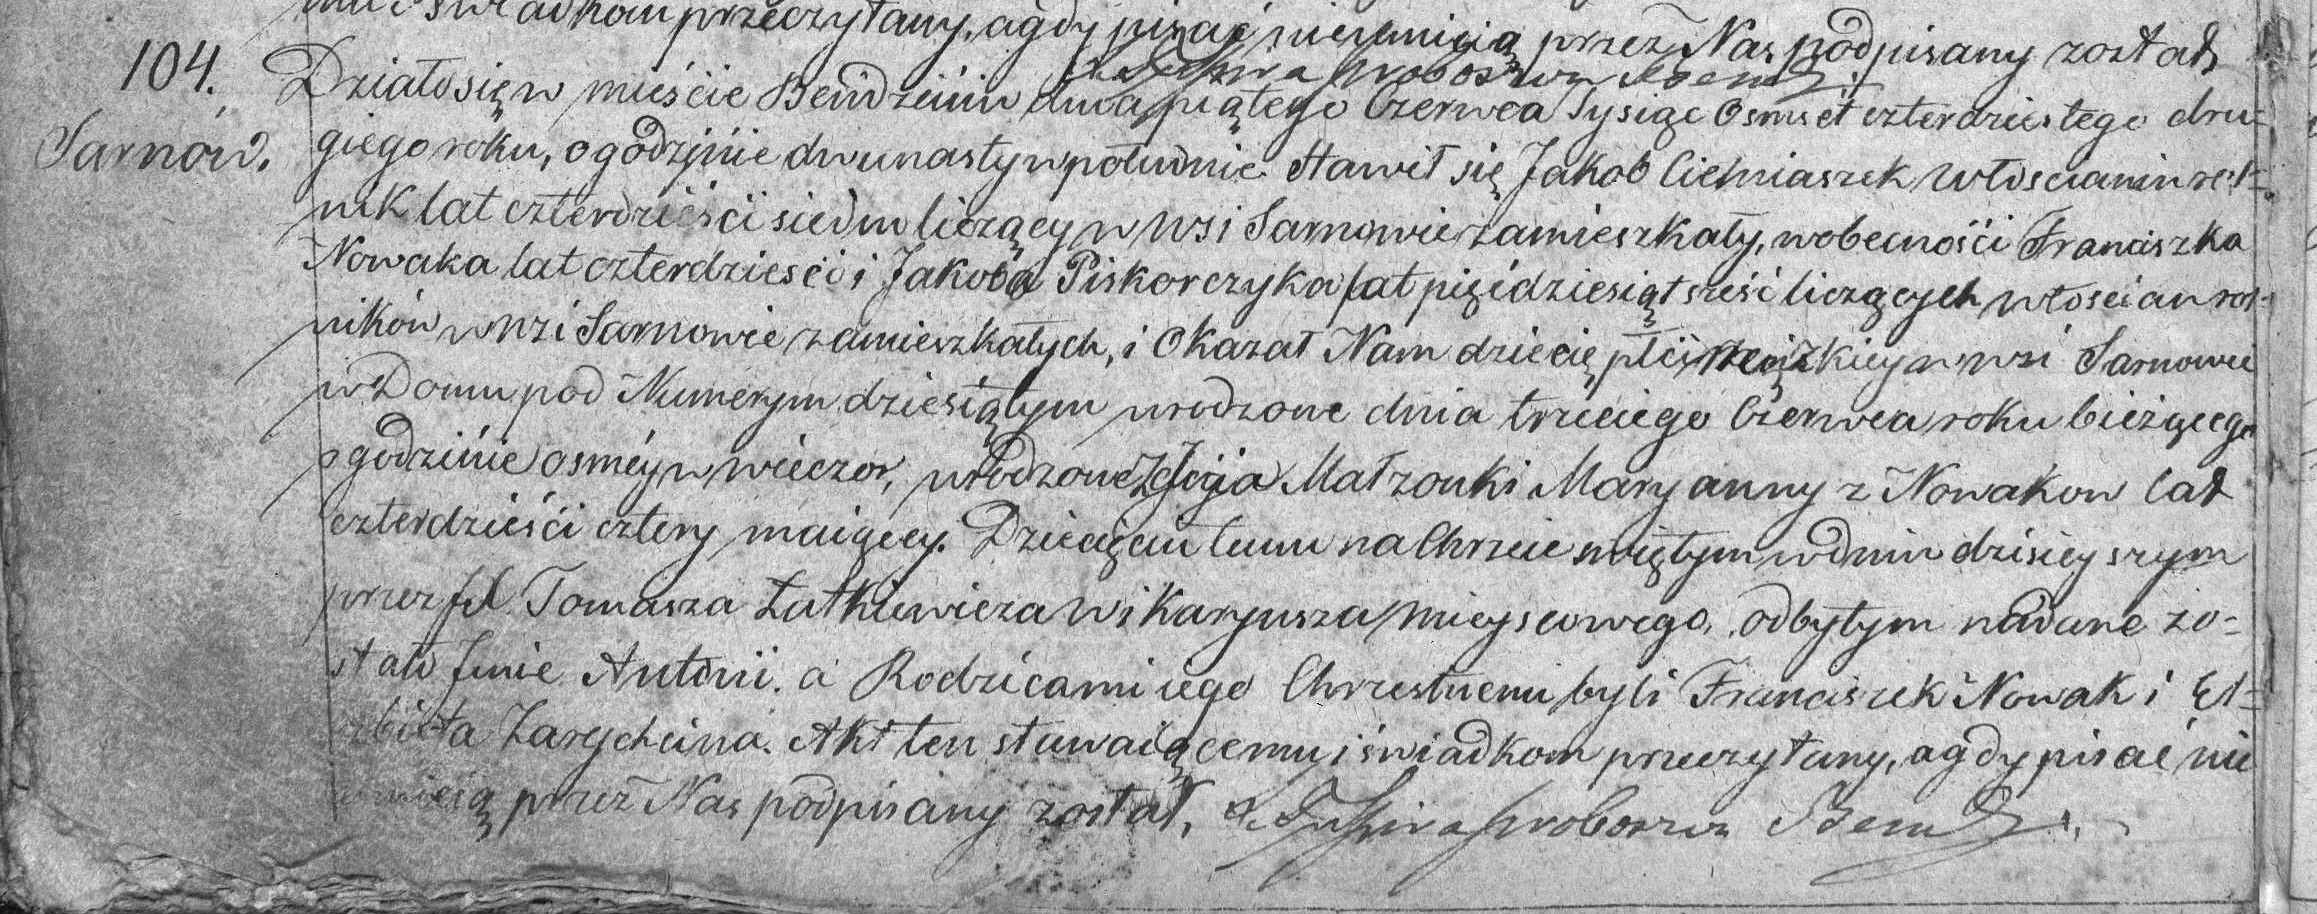 świadkom przeczytany, a gdy pisać nieumieią przez Nas podpisany został,
104. Działo się w mieście Bendzinie dnia piątego Czerwca Tysiąc Osmset czterdziestego dru=
Sarnów. giego roku, o godzinie dwunasty w południe Stawił się Jakob Cieślniaszek Włoscianin rol=
nik lat czterdzieści siedm liczący w Wsi Sarnowie zamieszkały, w obecności Franciszka
Nowaka lat czterdziesci i Jakoba Piskorczyka lat pięćdziesiąt sześć liczących włościan rol=
ników w Wsi Sarnowie zamieszkałych, i Okazał Nam dziecię płci męzkiey w wsi Sarnowie
w Domu pod Numerym dziesiątym urodzone dnia trzeciego Czerwca roku bieżącego
o godzinie osméy w wieczor, urodzone z Jego Małzonki Maryanny z Nowakow lat
czterdzieści cztery maiącey. Dziecięciu temu na Chrzcie swiętym w dniu dzisieyszym
przez X. Tomasza Łutkiewicza Wikaryusza mieyscowego, odbytym nadane zo=
stało Jmie Antoni. a Rodzicami iego Chrzestnemi byli Franciszek Nowak i El=
zbieta Zarychcina. Akt ten stawaiącemu i świadkom przeczytany, a gdy pisać nie
umieią przez Nas podpisany został,